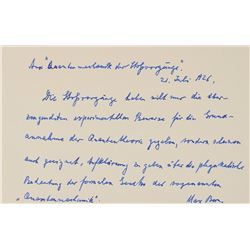 Aus "Quantenmechanik der Stoßvorgänge".
21. Juli 1926.
Die Stoßvorgänge haben nicht nur die über-
zeugendsten experimentellen Beweise für die Grund-
annahme der Quantentheorie gegeben, sondern scheinen
auch geeignet, Aufklärung zu geben über die physikalische
Bedeutung der formalen Gesetze der sogenannten
"Quantenmechanik". Max Born.